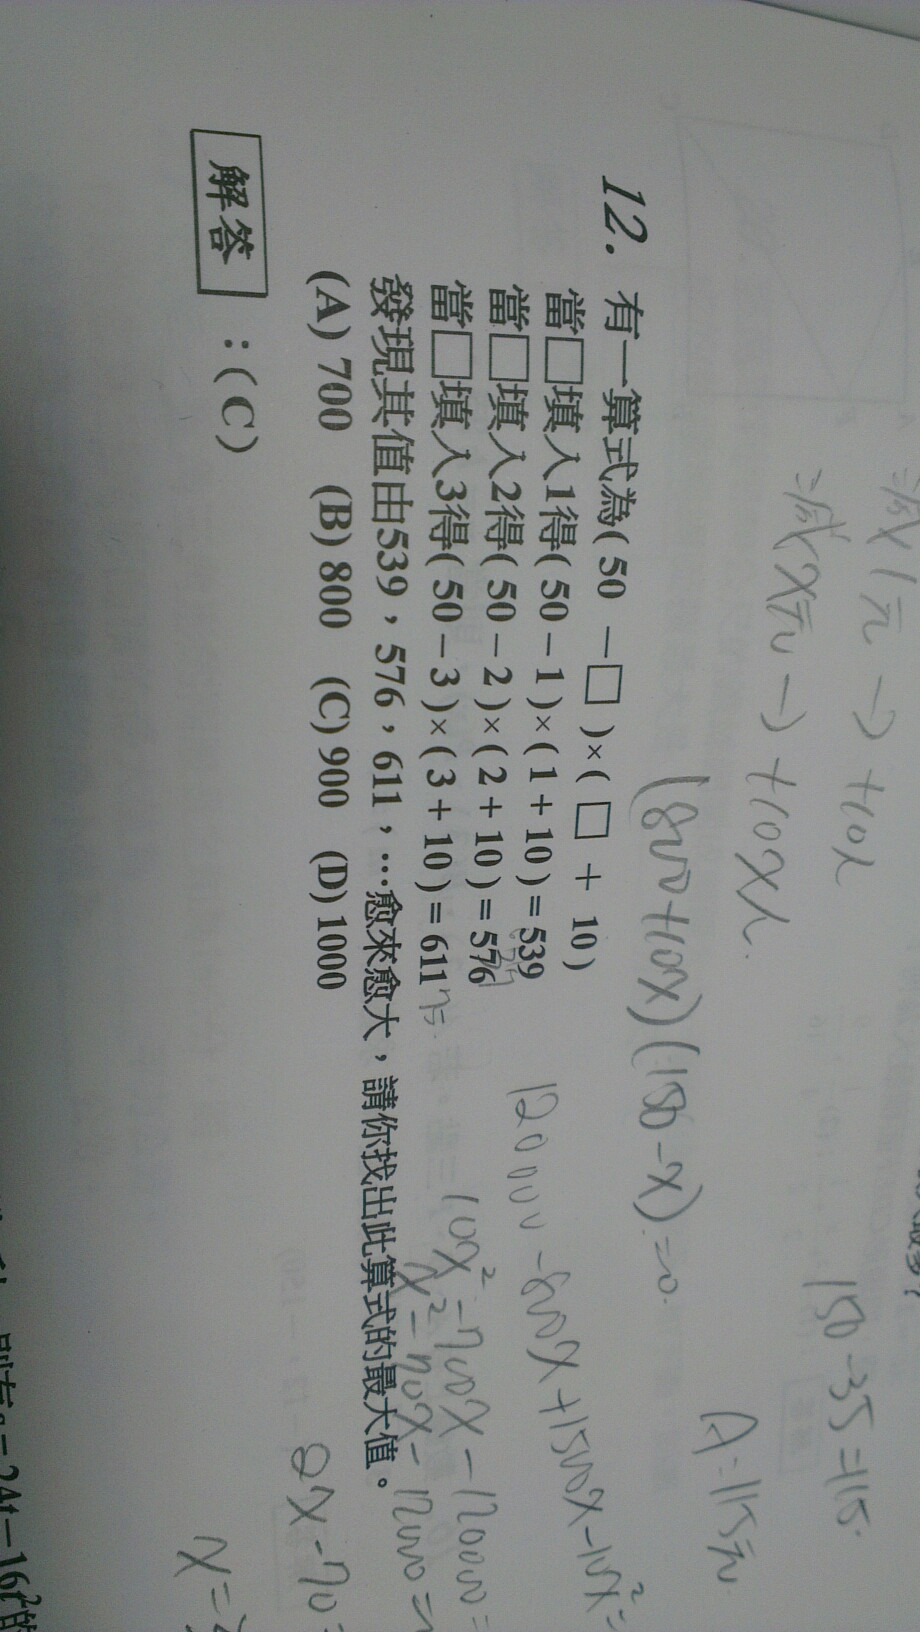 減1元→+10人
減x元→+10x人.
150-35=115.
A:115元
(800+10x)(150-x)=0.
12. 有一算式為(50-□)×(□+10)
當□填入1得(50-1)×(1+10)=539
當□填入2得(50-2)×(2+10)=576
當□填入3得(50-3)×(3+10)=611
發現其值由539,576,611,…愈來愈大,請你找出此算式的最大值。
(A)700 (B)800 (C)900 (D)1000
120000-800x+1500x-10x²=
10x²-700x-120000=
x²-70x-12000=
2x-70=
x=3
解答:(C)
=24t-16t²的